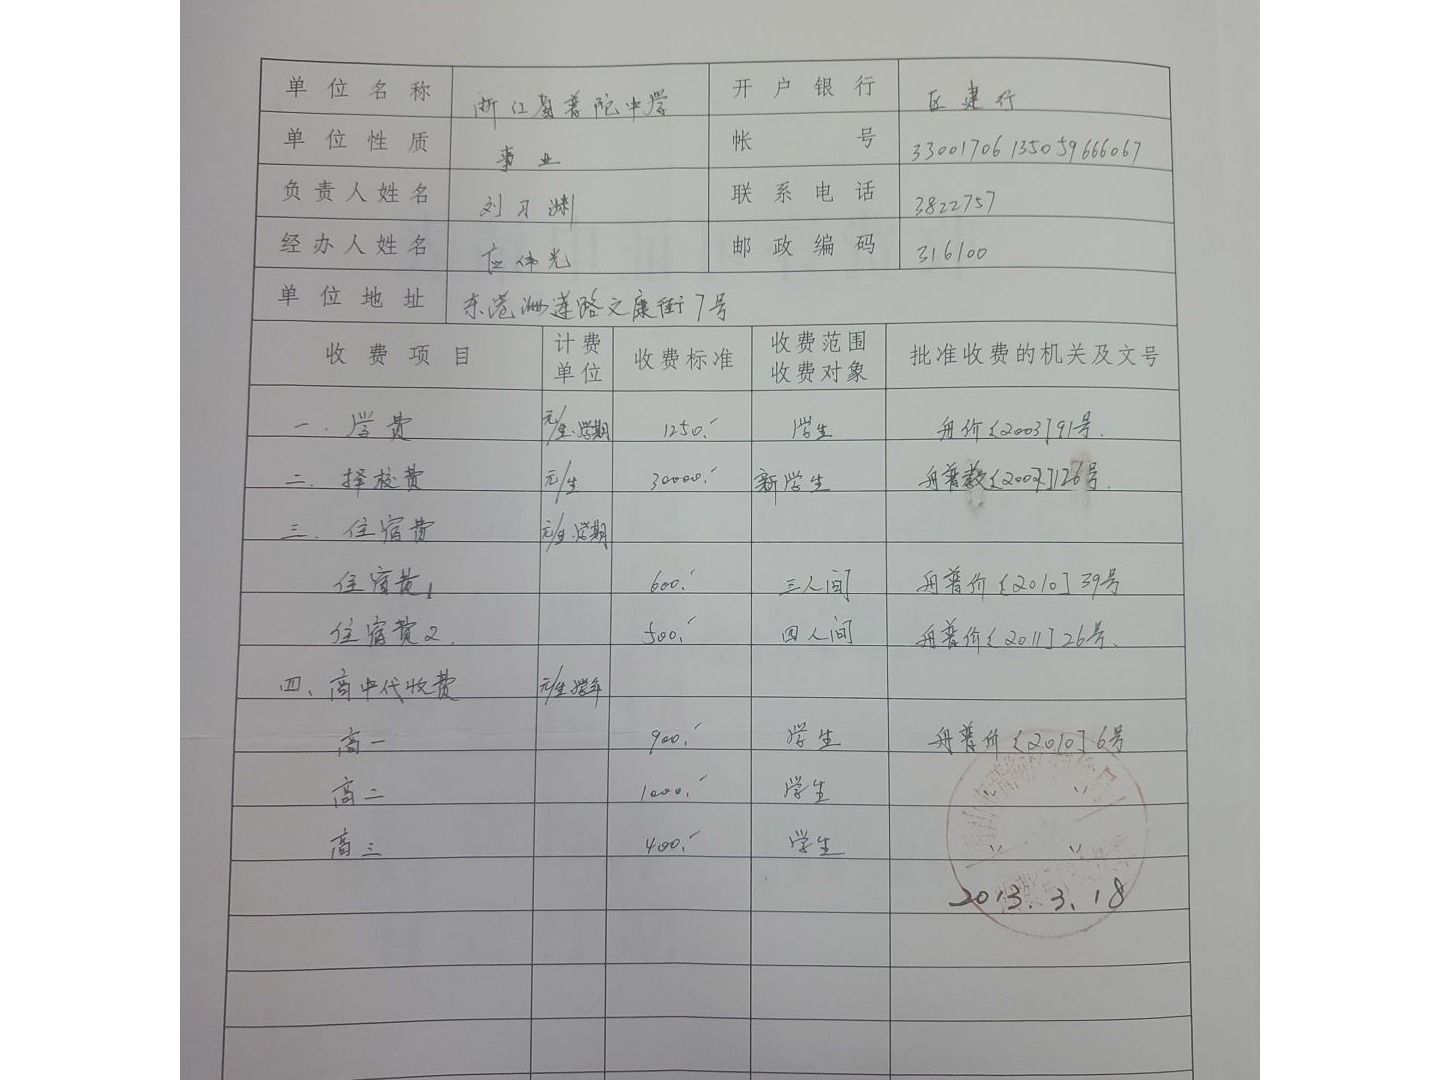 单位名称 浙江省普陀中学 开户银行 区建行
单位性质 事业 帐号 33001706135059666067
负责人姓名 刘习渊 联系电话 3822757
经办人姓名 应伟光 邮政编码 316100
单位地址 东港海莲路文康街7号
收费项目 计费单位 收费标准 收费范围收费对象 批准收费的机关及文号
一.学费 元/生.学期 1250.- 学生 舟价〔2003〕91号.
二.择校费 元/生 30000.- 新学生 舟普教〔2002〕126号.
三.住宿费 元/生.学期
住宿费1 600.- 三人间 舟普价〔2010〕39号
住宿费2. 500.- 四人间 舟普价〔2011〕26号.
四、高中代收费 元/生.学年
高一 900.- 学生 舟普价〔2010〕6号
高二 1000.- 学生 〃 〃
高三 400.- 学生 〃 〃
2013.3.18